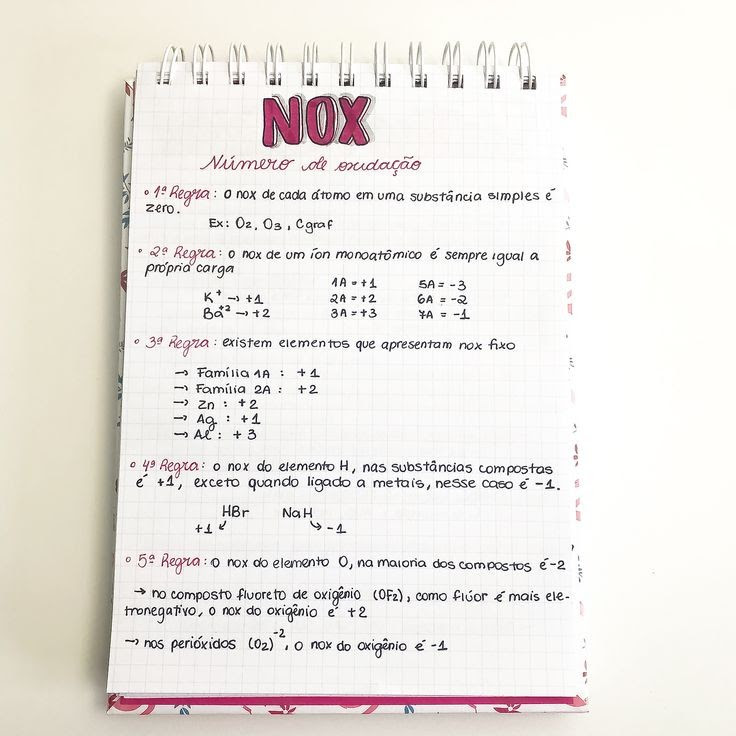 NOX
Número de oxidação
• 1ª Regra: o nox de cada átomo em uma substância simples é
zero.
Ex: O2, O3, Cgraf
• 2ª Regra: o nox de um íon monoatômico é sempre igual a
própria carga
K⁺ → +1
Ba⁺² → +2
1A = +1
2A = +2
3A = +3
5A = -3
6A = -2
7A = -1
• 3ª Regra: existem elementos que apresentam nox fixo
→ Família 1A : +1
→ Família 2A : +2
→ Zn : +2
→ Ag : +1
→ Al : +3
• 4ª Regra: o nox do elemento H, nas substâncias compostas
é +1, exceto quando ligado a metais, nesse caso é -1.
HBr NaH
+1 ↙ ↘ -1
• 5ª Regra: o nox do elemento O, na maioria dos compostos é -2
→ no composto fluoreto de oxigênio (OF2), como flúor é mais ele-
tronegativo, o nox do oxigênio é +2
→ nos perióxidos (O2)⁻², o nox do oxigênio é -1